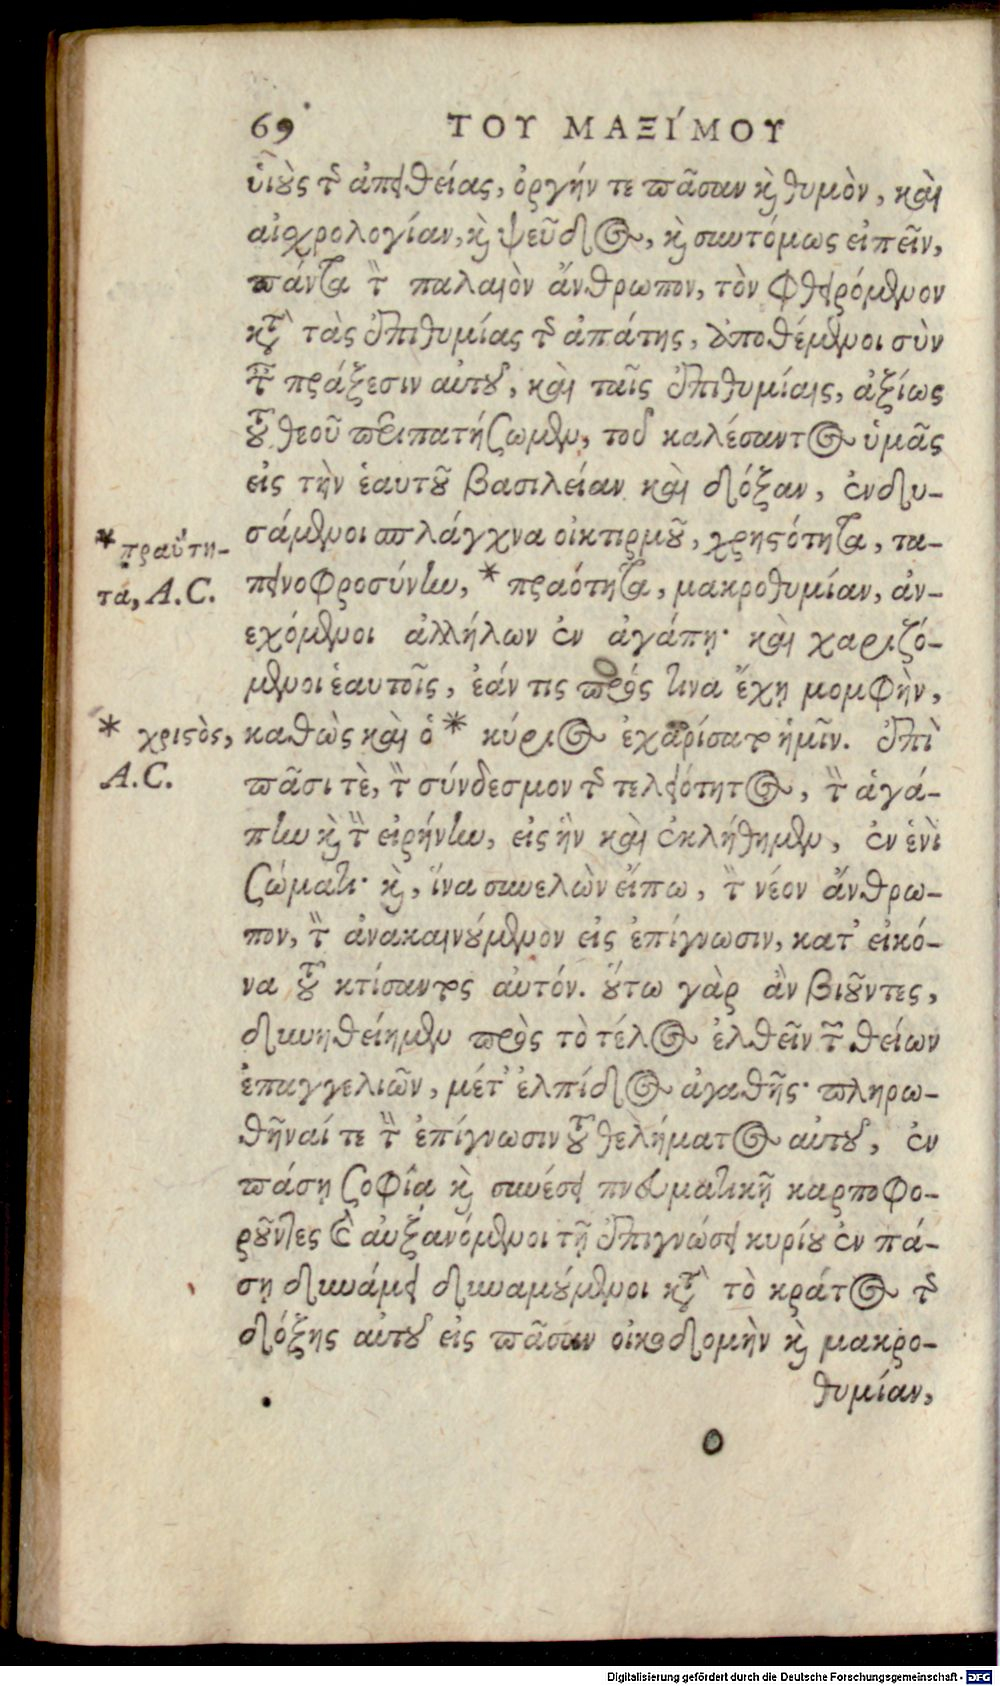 69 ΤΟΥ ΜΑΞΙΜΟΥ
υἱοὺς τῆς ἀπειθείας, ὀργήν τε πᾶσαν καὶ θυμὸν, καὶ
αἰσχρολογίαν, καὶ ψεῦδος, καὶ συντόμως εἰπεῖν,
πάντα τὸν παλαιὸν ἄνθρωπον, τὸν φθειρόμενον
κατὰ τὰς ἐπιθυμίας τῆς ἀπάτης, ἀποθέμενοι σὺν
ταῖς πράξεσιν αὐτοῦ, καὶ ταῖς ἐπιθυμίαις, ἀξίως
τοῦ θεοῦ περιπατήσωμεν, τοῦ καλέσαντος ὑμᾶς
εἰς τὴν ἑαυτοῦ βασιλείαν καὶ δόξαν, ἐνδυ-
σάμενοι σπλάγχνα οἰκτιρμοῦ, χρηστότητα, τα-
πεινοφροσύνην, * πραότητα, μακροθυμίαν, ἀν-
εχόμενοι ἀλλήλων ἐν ἀγάπῃ· καὶ χαριζό-
μενοι ἑαυτοῖς, ἐάν τις πρός τινα ἔχῃ μομφὴν,
καθὼς καὶ ὁ * κύριος ἐχαρίσατο ἡμῖν. ἐπὶ
πᾶσι τὲ, τὸν σύνδεσμον τῆς τελειότητος, τὴν ἀγά-
πην καὶ τὴν εἰρήνην, εἰς ἣν καὶ ἐκλήθημεν, ἐν ἑνὶ
σώματι· καὶ, ἵνα συνελὼν εἴπω, τὸν νέον ἄνθρω-
πον, τὸν ἀνακαινούμενον εἰς ἐπίγνωσιν, κατ' εἰκό-
να τοῦ κτίσαντος αὐτόν. οὕτω γὰρ ἂν βιοῦντες,
δυνηθείημεν πρὸς τὸ τέλος ἐλθεῖν τῶν θείων
ἐπαγγελιῶν, μέτ' ἐλπίδος ἀγαθῆς· πληρω-
θῆναί τε τὴν ἐπίγνωσιν τοῦ θελήματος αὐτοῦ, ἐν
πάσῃ σοφίᾳ καὶ συνέσει πνευματικῇ καρποφο-
ροῦντες καὶ αὐξανόμενοι τῇ ἐπιγνώσει κυρίου ἐν πά-
σῃ δυνάμει δυναμούμενοι κατὰ τὸ κράτος τῆς
δόξης αὐτοῦ εἰς πᾶσαν οἰκοδομὴν καὶ μακρο-
θυμίαν,
* πραΰτη-
τα, A.C.
* χριστὸς,
A.C.
Digitalisierung gefördert durch die Deutsche Forschungsgemeinschaft - DFG